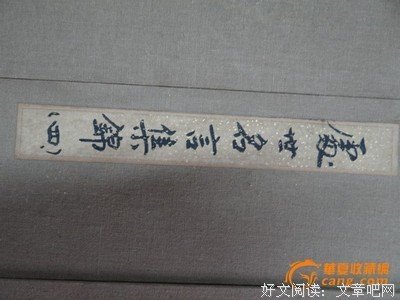 處世名言集錦(四)
華夏收藏網
cang.com
好文阅读: 文章吧网